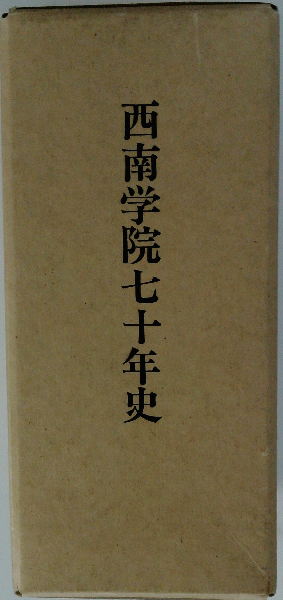 西南学院七十年史